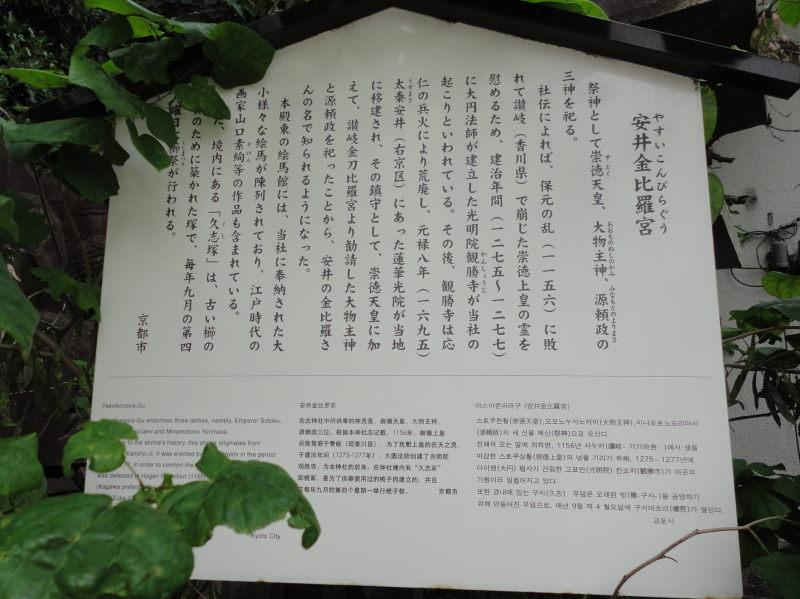 安井金比羅宮
やすいこんぴらぐう
祭神として崇徳天皇、大物主神、源頼政の
すとく
おおものぬしのかみ
みなもとのよりまさ
三神を祀る。
社伝によれば、保元の乱(一一五六)に敗
れて讃岐(香川県)で崩じた崇徳上皇の霊を
慰めるため、建治年間(一二七五〜一二七七)
に大円法師が建立した光明院観勝寺が当社の
かんしょうじ
起こりといわれている。その後、観勝寺は応
仁の兵火により荒廃し、元禄八年(一六九五)
太秦安井(右京区)にあった蓮華光院が当地
うずまさ
に移建され、その鎮守として、崇徳天皇に加
えて、讃岐金刀比羅宮より勧請した大物主神
と源頼政を祀ったことから、安井の金比羅さ
んの名で知られるようになった。
本殿東の絵馬館には、当社に奉納された大
小様々な絵馬が陳列されており、江戸時代の
画家山口素絢等の作品も含まれている。
そけん
、境内にある「久志塚」は、古い櫛の
く
のために築かれた塚で、毎年九月の第四
祭が行われる。
京都市
Yasuikonpira-Gu
enshrines three deities, namely, Emperor Sutoku,
and Minamotono Yorimasa.
to the shrine's history, this shrine originates from
Kansho-ji. It was erected by in the period
in order to comfort the
was defeated in Hogen Rebellion (1156)
(Kagawa
Kyoto City
安井金比罗宫
在此神社中所供奉的神灵是、崇德天皇、大物主神、
源赖政三位。根据本神社志记载、1156年、崇德上皇
兵败驾崩于赞岐(现香川县)、为了抚慰上皇的在天之灵、
于建治年间(1275-1277年)、大圆法师创建了光明院
观胜寺、为本神社的前身。在神社境内有“久志冢”、
即梳冢、是为了供奉使用过的梳子而建立的、并且
在每年九月的第四个星期一举行梳子祭。 京都市
야스이콘피라구 (安井金比羅宮)
스토쿠천황(崇徳天皇),오모노누시노카미(大物主神),미나모토노요리마사
(源頼政)의 세 신을 제신(祭神)으로 모신다.
전해져 오는 말에 의하면, 1156년 사누키(讃岐-가가와현-)에서 생을
마감한 스토쿠상황(崇徳上皇)의 넋을 기리기 위해, 1275- 1277년에
다이엔(大円) 법사가 건립한 고묘인(光明院) 칸쇼지(観勝寺)가 이곳의
기원이라 일컬어지고 있다.
또한 경내에 있는 구시(久志) 무덤은 오래된 빗(櫛-구시-)을 공양하기
위해 만들어진 무덤으로, 매년 9월 제 4 월요일에 구시마츠리(櫛祭)가 열린다.
교토시